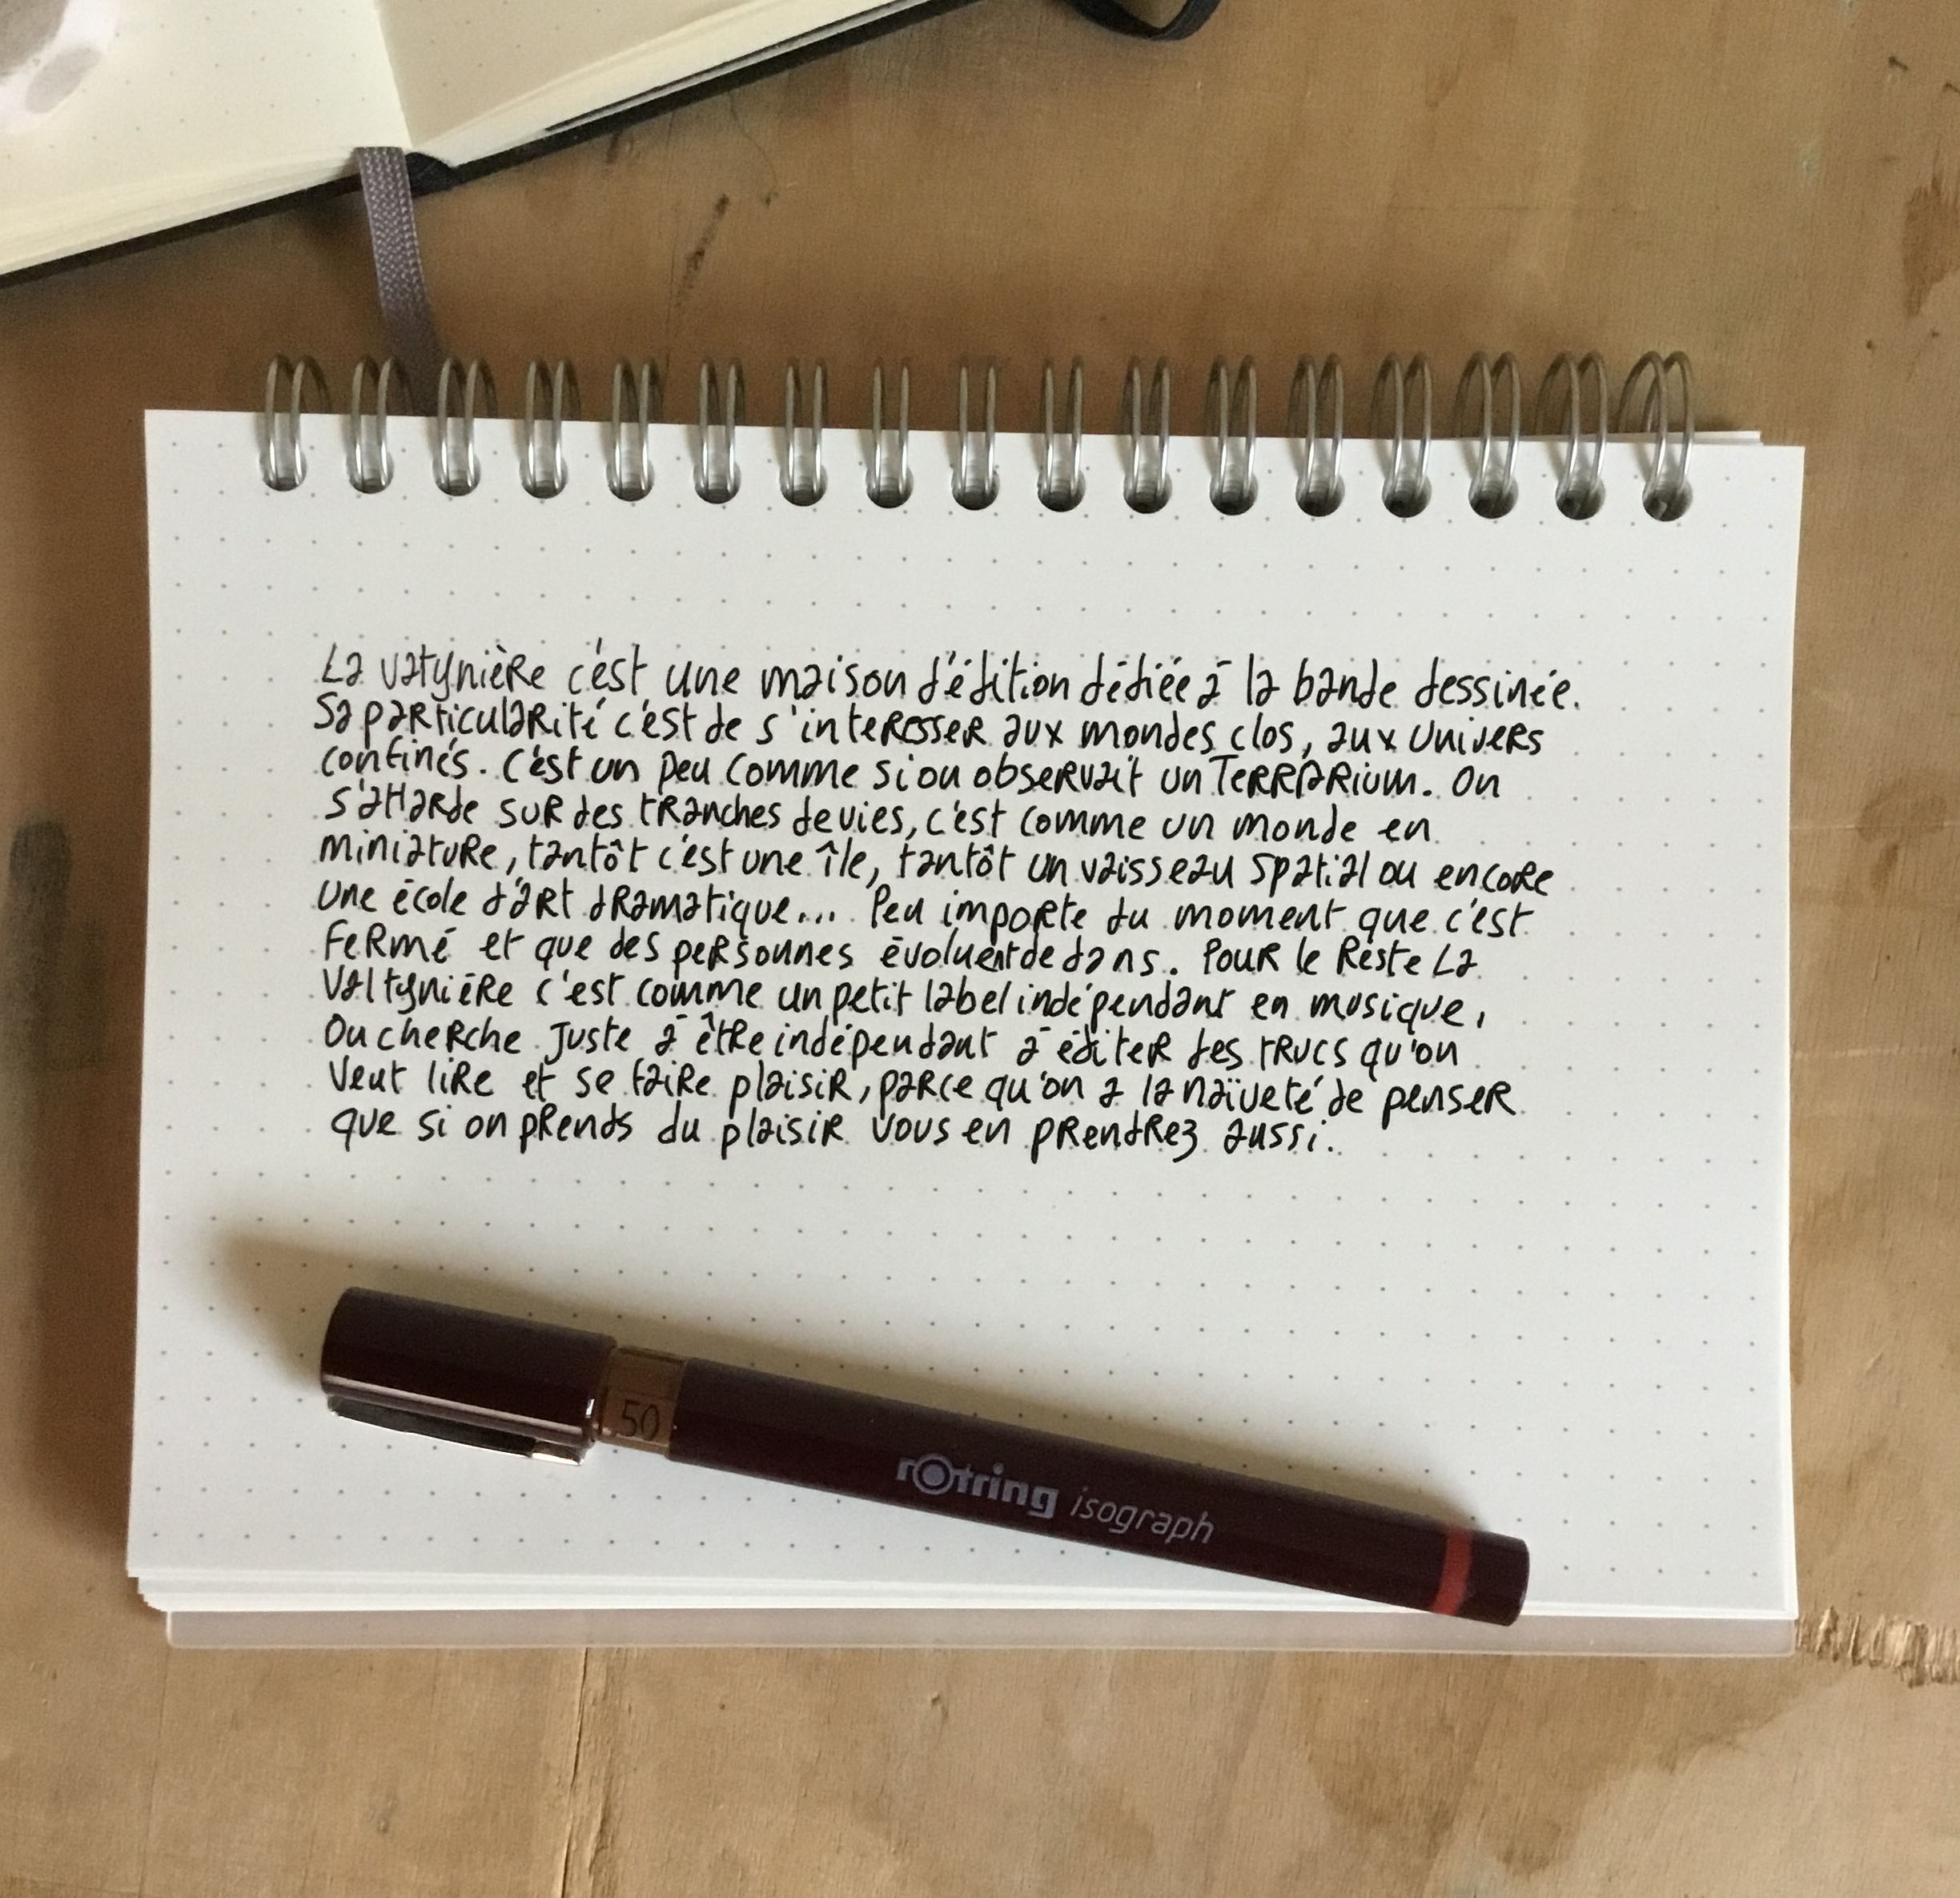 La valtynière c'est une maison d'édition dédiée à la bande dessinée.
Sa particularité c'est de s'interesser aux mondes clos, aux univers
confinés. C'est un peu comme si on observait un Terrarium. On
s'attarde sur des tranches de vies, c'est comme un monde en
miniature, tantôt c'est une île, tantôt un vaisseau spatial ou encore
une école d'art dramatique... Peu importe du moment que c'est
fermé et que des personnes évoluent dedans. Pour le Reste La
Valtynière c'est comme un petit label indépendant en musique,
On cherche juste à être indépendant à éditer des trucs qu'on
veut lire et se faire plaisir, parce qu'on a la naïveté de penser
que si on prends du plaisir vous en prendrez aussi.
50
rOtring isograph